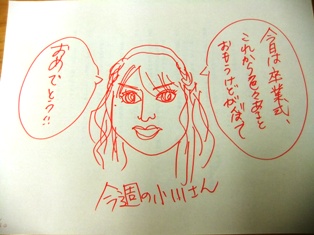 今日は卒業式、
これから色々あると
おもうけどがんばって
おめでとう!!
今週の小川さん